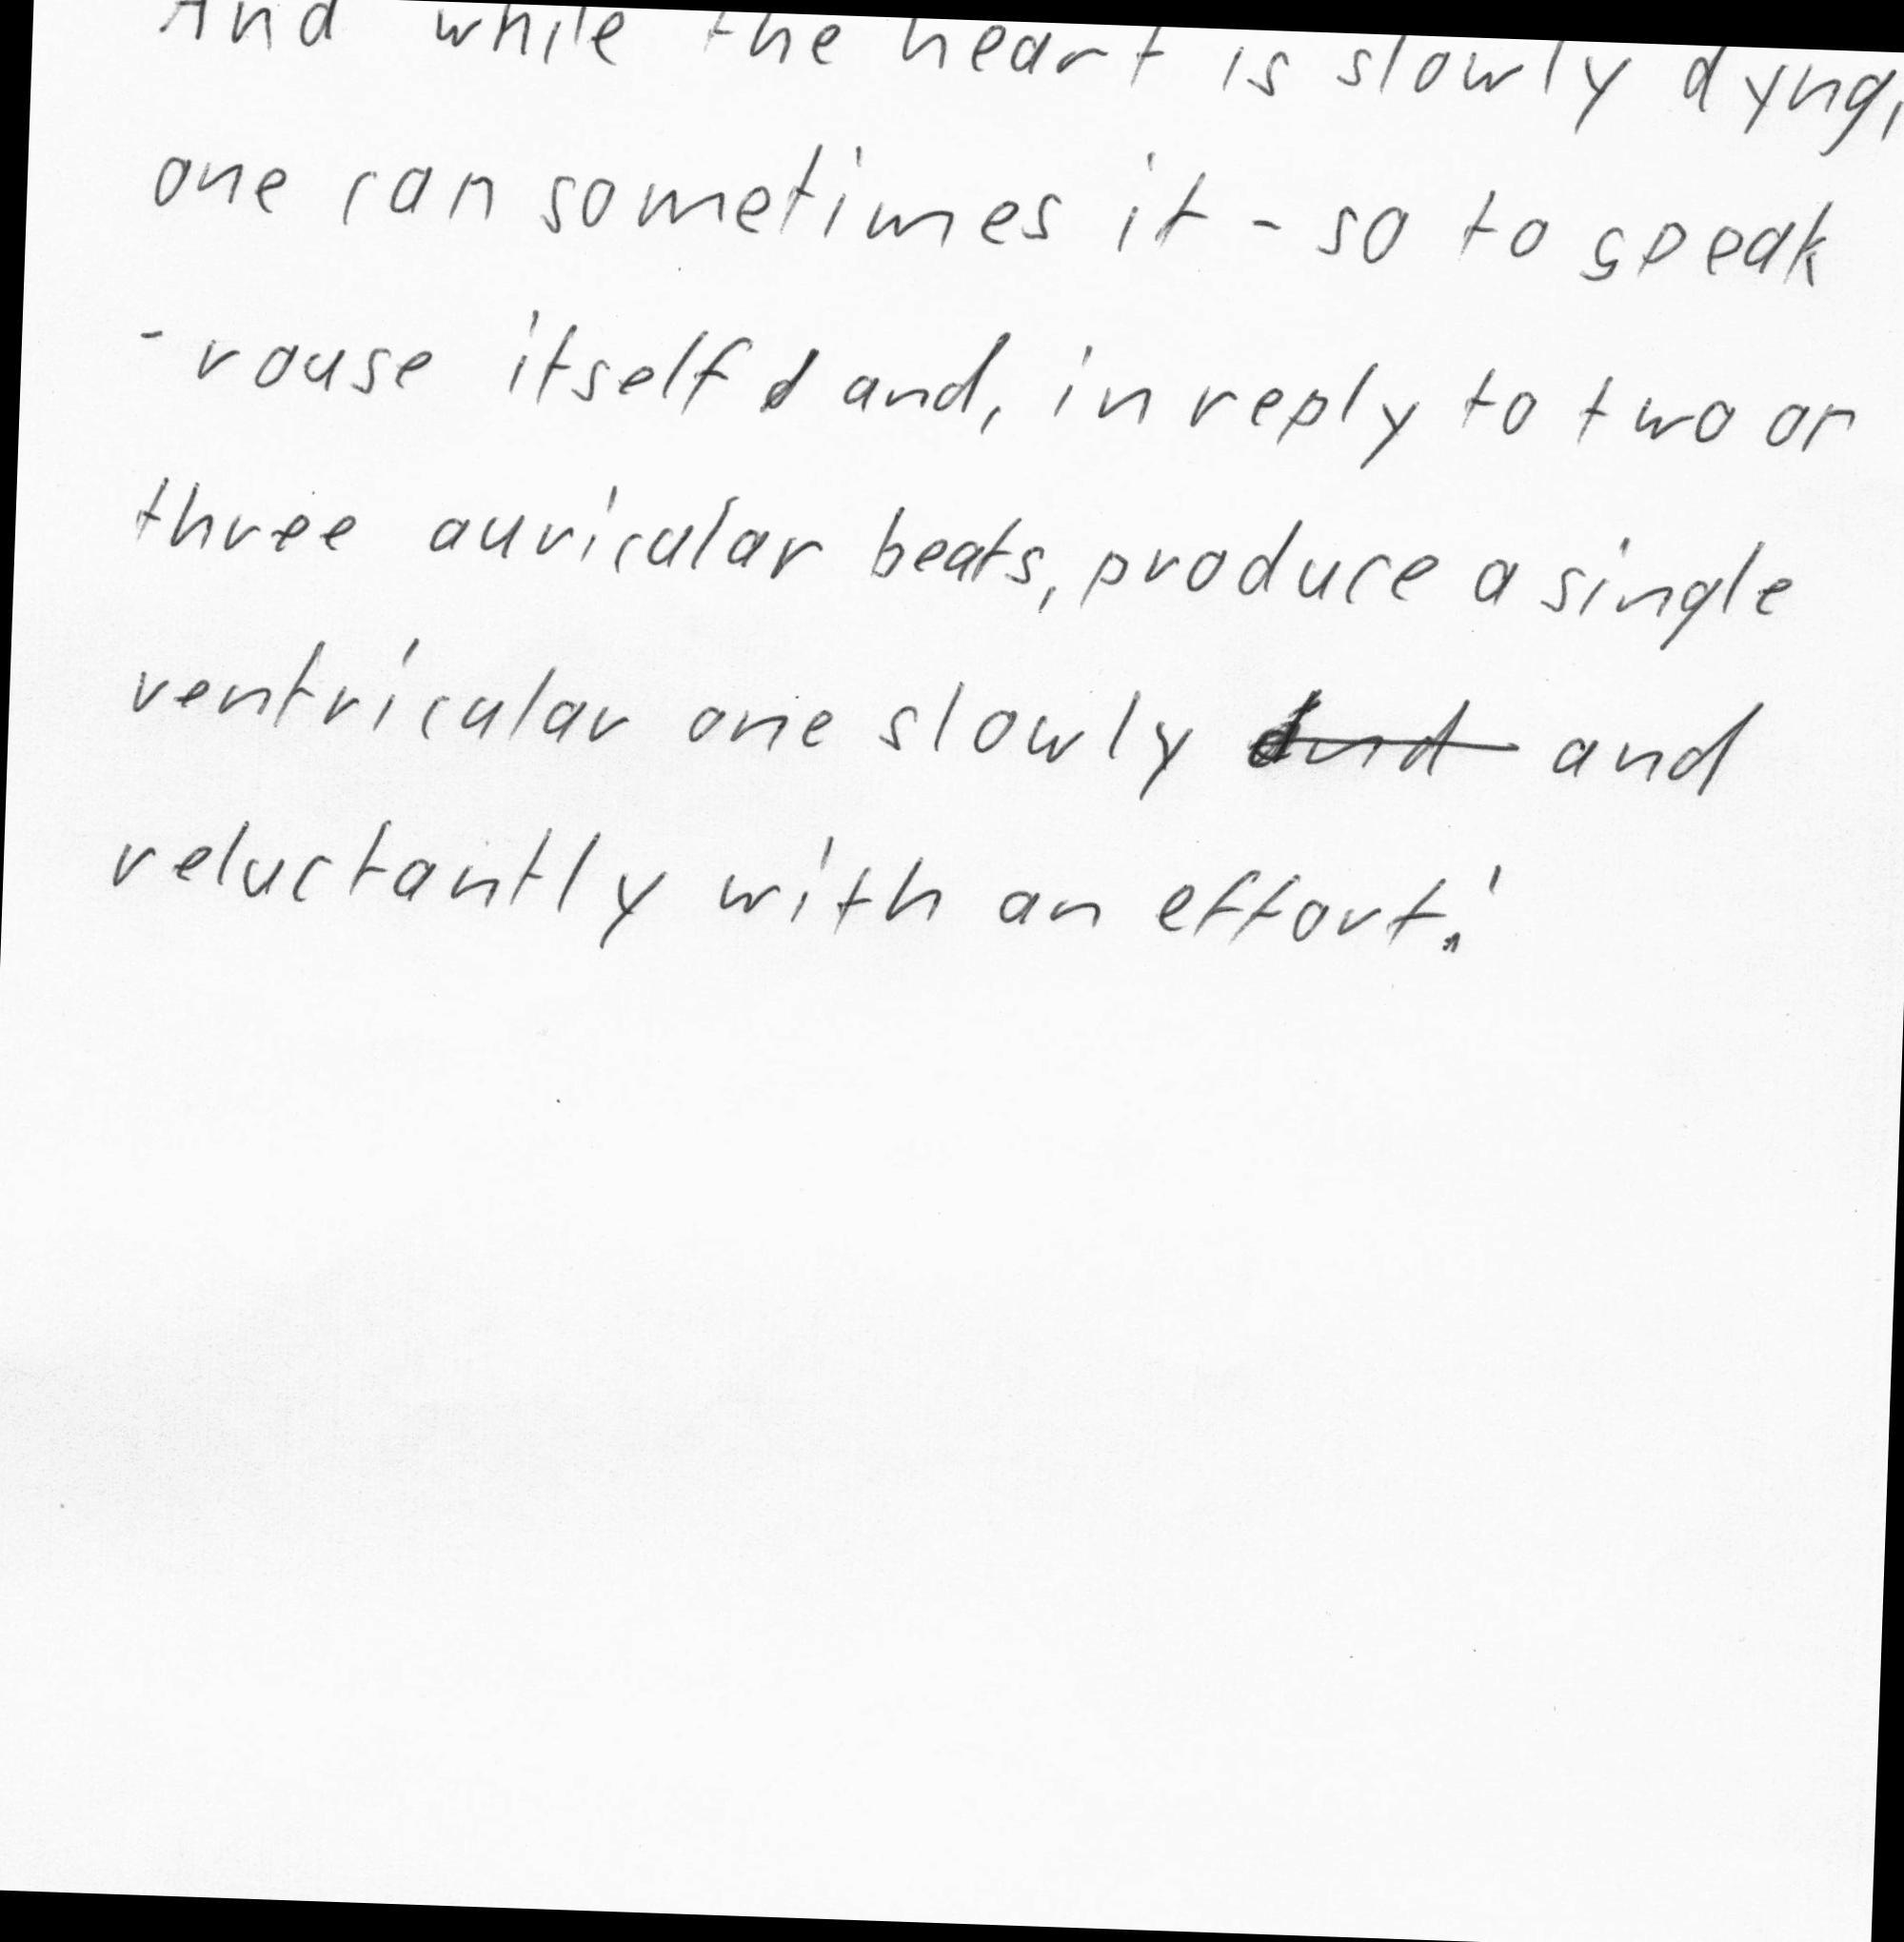 And while the heart is slowly dyng,
one can sometimes it - so to speak
- rouse itself and, in reply to two or
three auricular beats, produce a single
ventricular one slowly and
reluctantly with an effort.'